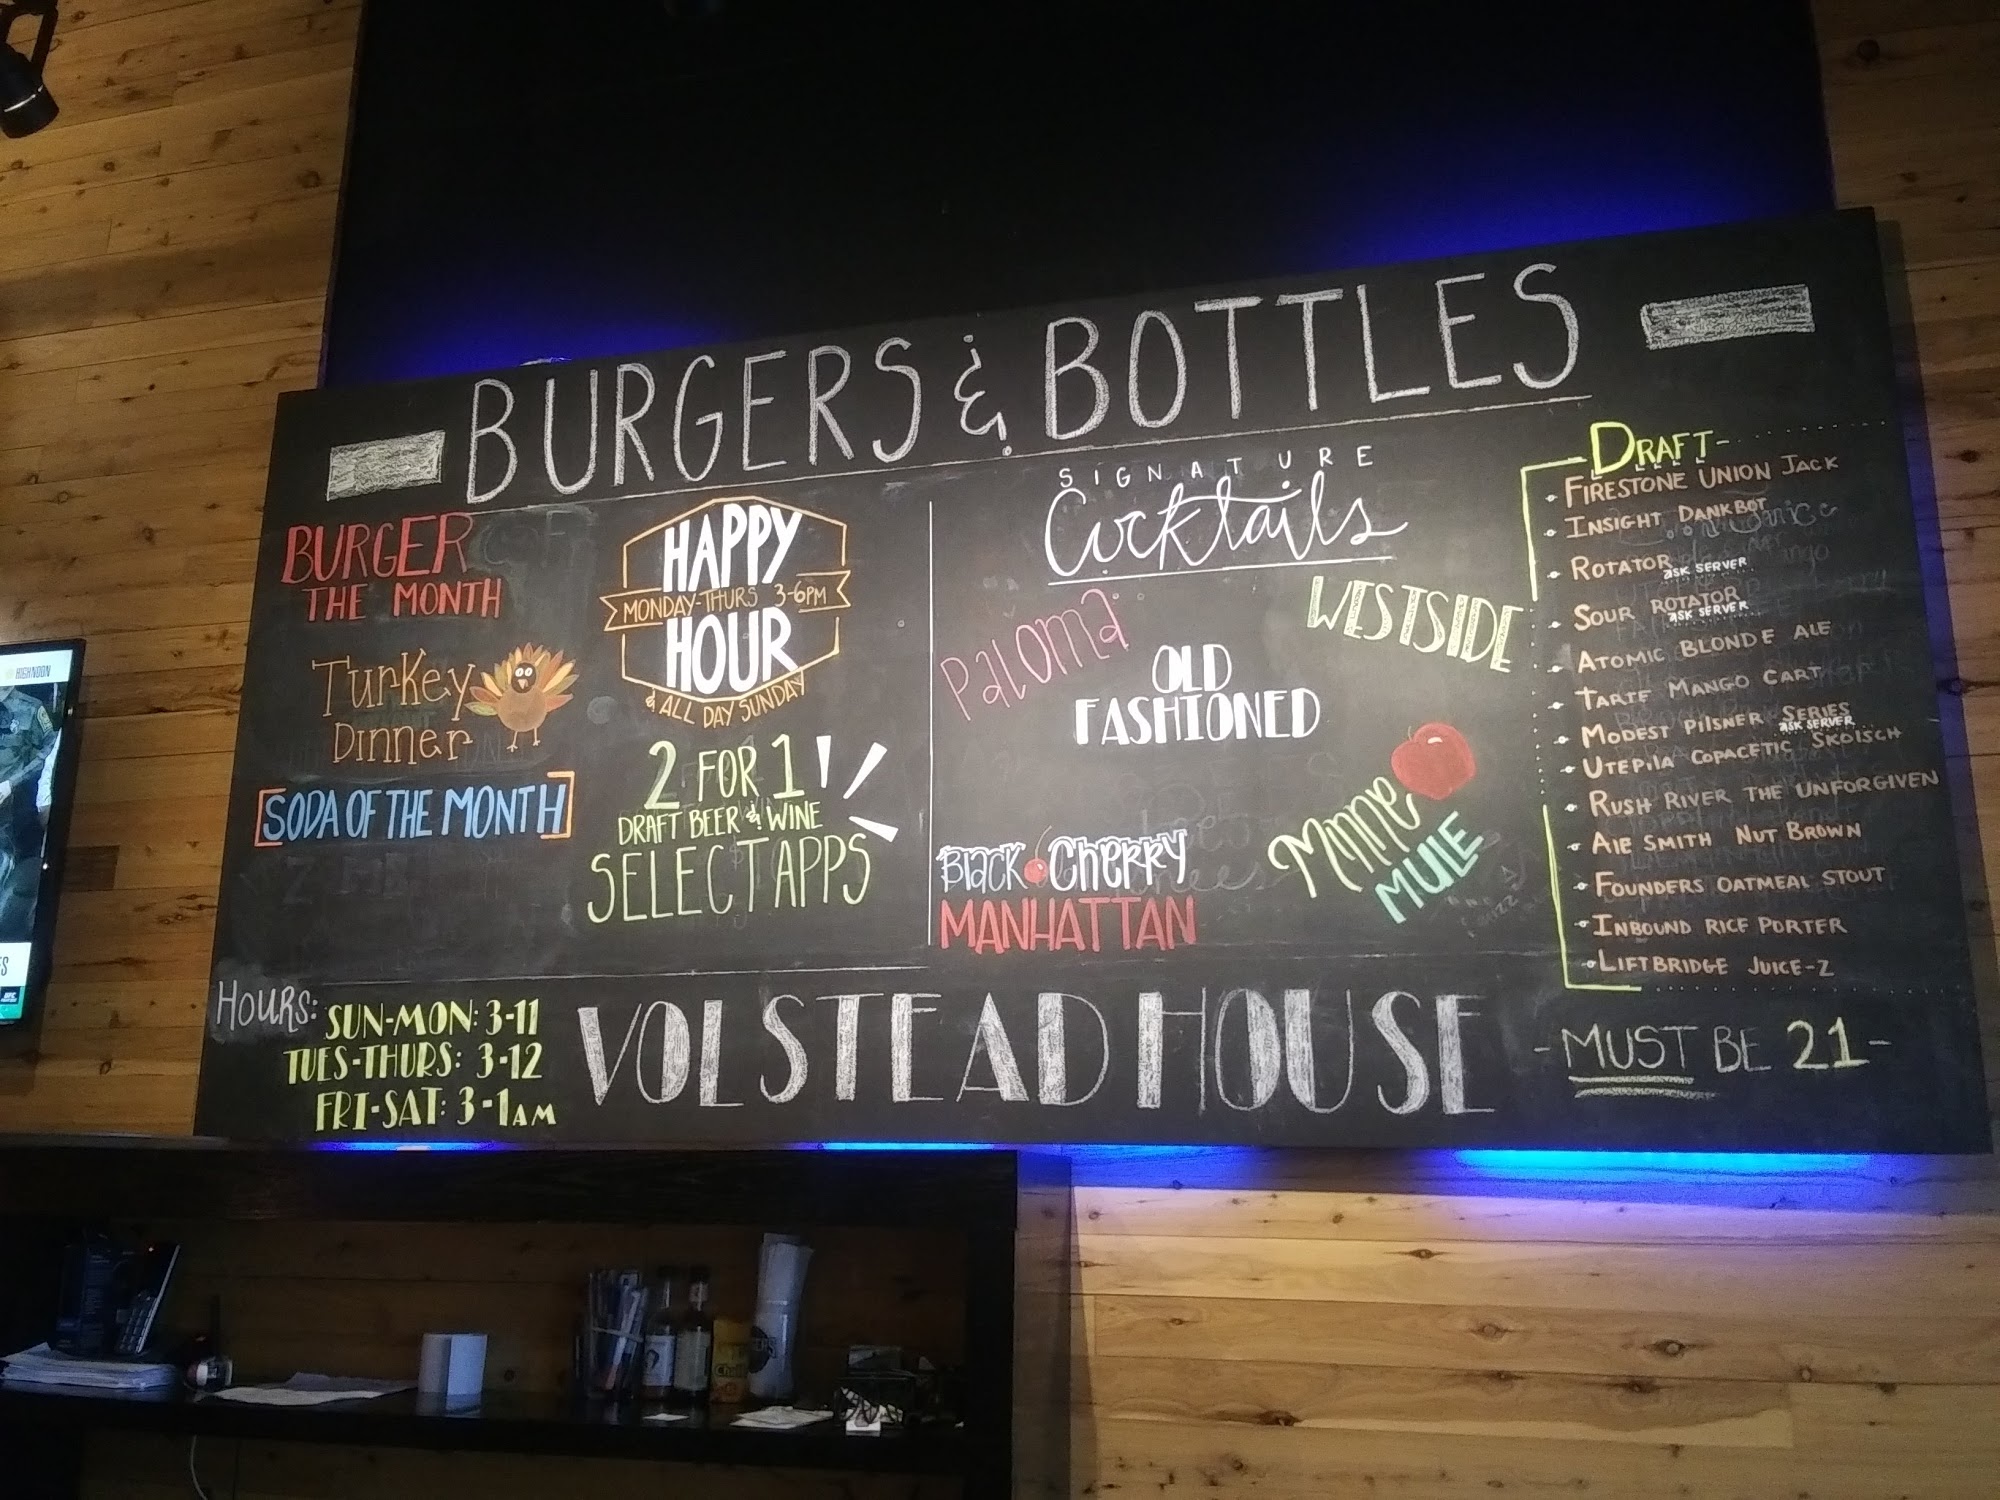 BURGERS & BOTTLES
BURGER
THE MONTH
Turkey
Dinner
[SODA OF THE MONTH]
HAPPY
MONDAY-THURS 3-6PM
HOUR
& ALL DAY SUNDAY
2 FOR 1
DRAFT BEER & WINE
SELECT APPS
SIGNATURE
Cocktails
Paloma
WESTSIDE
OLD
FASHIONED
Minne
MULE
Black Cherry
MANHATTAN
DRAFT-
FIRESTONE UNION JACK
INSIGHT DANKBOT
ROTATOR
ASK SERVER
SOUR ROTATOR
ASK SERVER
ATOMIC BLONDE ALE
TARTE MANGO CART
MODEST PILSNER SERIES
ASK SERVER
UTEPILA COPACETIC SKOLSCH
RUSH RIVER THE UNFORGIVEN
ALE SMITH NUT BROWN
FOUNDERS OATMEAL STOUT
INBOUND RICE PORTER
LIFTBRIDGE JUICE-Z
Hours:
SUN-MON: 3-11
TUES-THURS: 3-12
FRI-SAT: 3-1AM
VOLSTEAD HOUSE
-MUST BE 21-
HIGH NOON